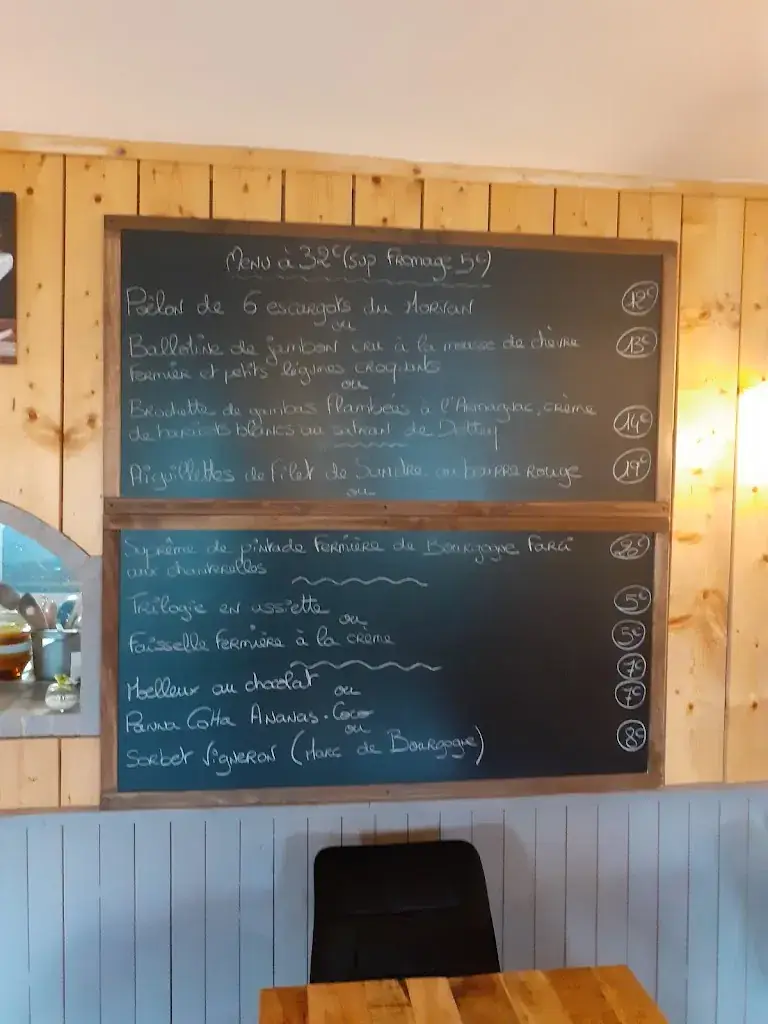 Menu à 32€ (sup fromage 5€)
Poêlon de 6 escargots du Morvan 12€
ou
Ballotine de jambon cru à la mousse de chèvre 13€
fermier et petits légumes croquants
ou
Brochette de gambas flambées à l'Armagnac, crème 14€
de haricots blancs au safran de
Aiguillettes de filet de Sandre au beurre rouge 19€
ou
Suprême de pintade fermière de Bourgogne farci 26€
aux chanterelles
Trilogie en assiette 5€
ou
Faisselle fermière à la crème 5€
7€
Moelleux au chocolat 7€
ou
Panna Cotta Ananas-Coco
ou
Sorbet Vigneron (Marc de Bourgogne) 8€